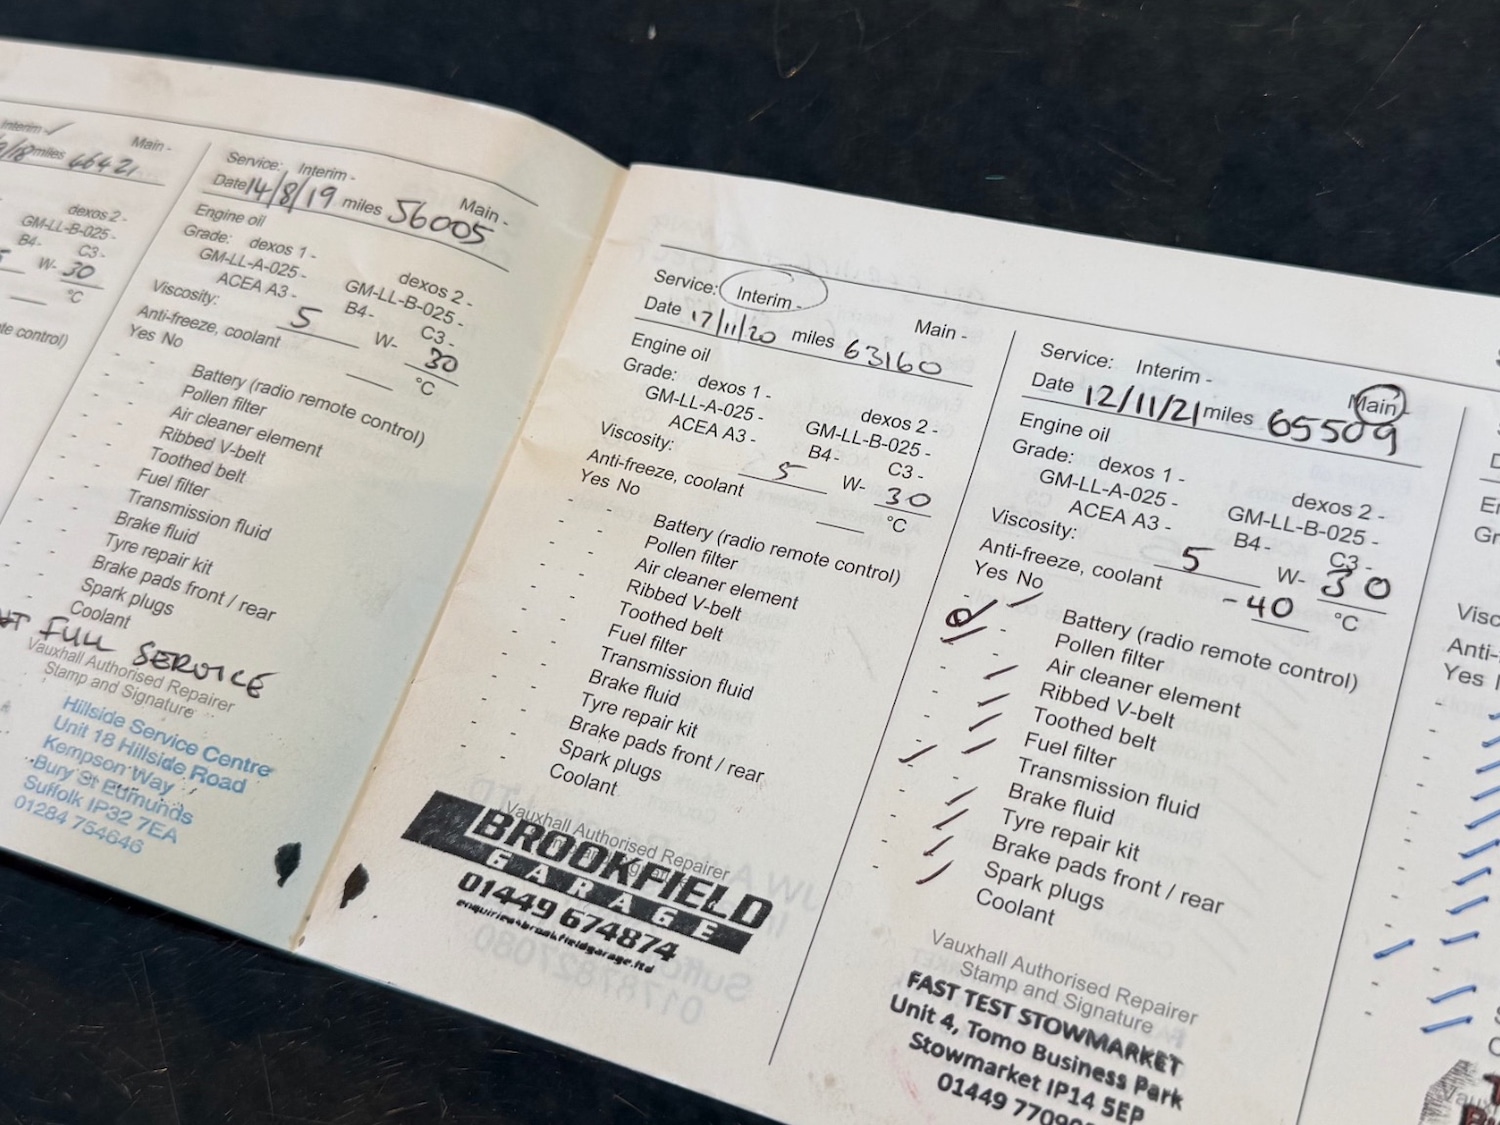 Interim- ✓
Main -
miles 46421
dexos 2 -
GM-LL-B-025 -
B4- C3 -
W- 30
°C
control)
Service: Interim -
Main -
Date 14/8/19 miles 56005
Engine oil
Grade: dexos 1 -
dexos 2 -
GM-LL-A-025 -
GM-LL-B-025 -
ACEA A3 -
B4- C3 -
Viscosity: 5 W- 30
Anti-freeze, coolant °C
Yes No
Battery (radio remote control)
Pollen filter
Air cleaner element
Ribbed V-belt
Toothed belt
Fuel filter
Transmission fluid
Brake fluid
Tyre repair kit
Brake pads front / rear
Spark plugs
Coolant
FULL SERVICE
Vauxhall Authorised Repairer
Stamp and Signature
Hillside Service Centre
Unit 18 Hillside Road
Kempson Way
Bury St Edmunds
Suffolk IP32 7EA
01284 754646
Service: Interim -
Main -
Date 17/11/20 miles 63160
Engine oil
Grade: dexos 1 -
dexos 2 -
GM-LL-A-025 -
GM-LL-B-025 -
ACEA A3 -
B4- C3 -
Viscosity: 5 W- 30
Anti-freeze, coolant °C
Yes No
Battery (radio remote control)
Pollen filter
Air cleaner element
Ribbed V-belt
Toothed belt
Fuel filter
Transmission fluid
Brake fluid
Tyre repair kit
Brake pads front / rear
Spark plugs
Coolant
Vauxhall Authorised Repairer
BROOKFIELD
GARAGE
01449 674874
enquiries@brookfieldgarage.ltd
Service: Interim -
Main -
Date 12/11/21 miles 65509
Engine oil
Grade: dexos 1 -
dexos 2 -
GM-LL-A-025 -
GM-LL-B-025 -
ACEA A3 -
B4- C3 -
Viscosity: 5 W- 30
Anti-freeze, coolant -40 °C
Yes No
Battery (radio remote control)
Pollen filter
Air cleaner element
Ribbed V-belt
Toothed belt
Fuel filter
Transmission fluid
Brake fluid
Tyre repair kit
Brake pads front / rear
Spark plugs
Coolant
Vauxhall Authorised Repairer
Stamp and Signature
FAST TEST STOWMARKET
Unit 4, Tomo Business Park
Stowmarket IP14 5EP
01449
Anti-
Yes